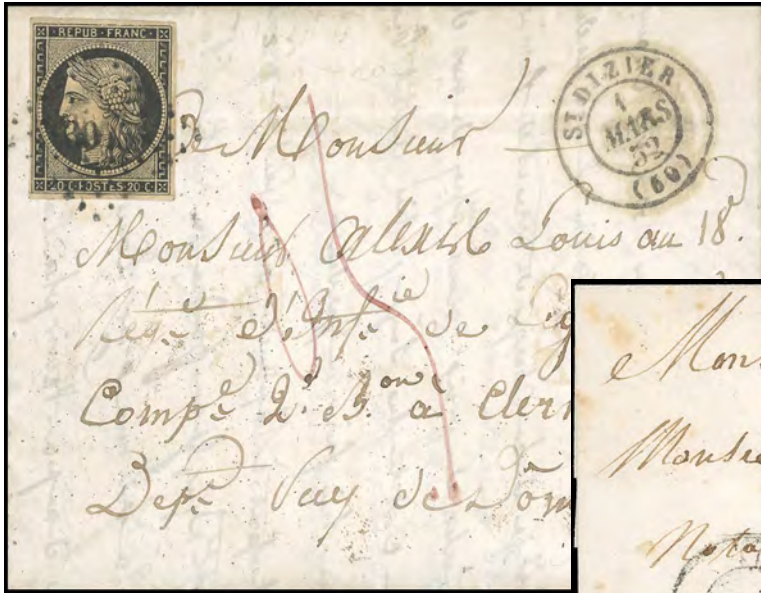 REPUB·FRANC·
20 C·POSTES·20 C
ST DIZIER
1
MARS
52
(60)
Monsieur
Monsieur Alexis Louis au 18e
Régt d'Infie de Lig
Compe 2e Bon à Cler
Dept Puy de Dom
Mon
Monsie
Nota